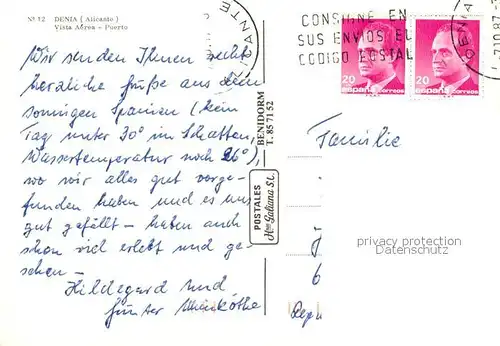 Nº 12 DENIA ( Alicante )
Vista Aérea - Puerto
Wir senden Ihnen recht
herzliche Grüße aus dem
sonnigen Spanien (kein
Tag unter 30° im Schatten,
Wassertemperatur noch 26°),
wo wir alles gut vorge-
funden haben und es uns
gut gefällt – haben auch
schon viel erlebt und ge-
sehen –
Hildegard und
Günter
POSTALES
Hnos Galiana S.L.
BENIDORM
T. 85 71 52
ALICANTE
CONSIGNE EN
SUS ENVIOS EL
CODIGO POSTAL
DENIA
20
españa correos
20
españa correos
Familie
privacy protection
Datenschutz
6